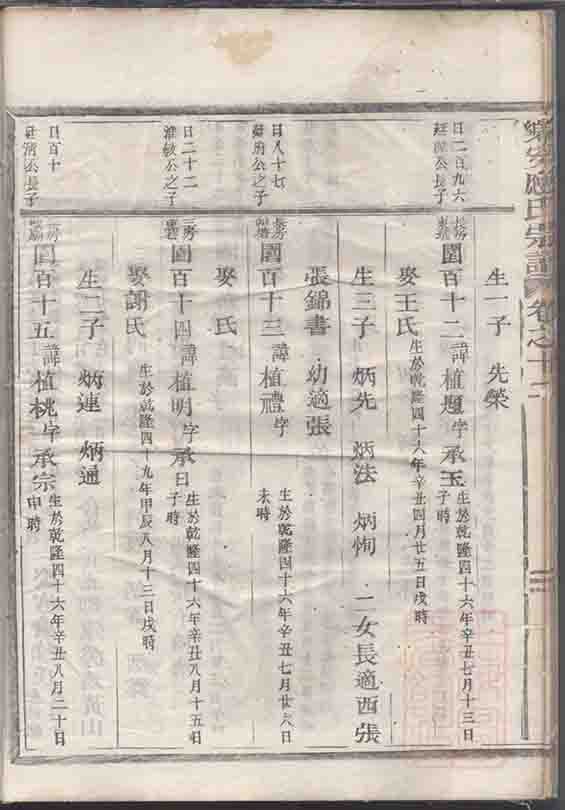 氏宗譜 卷之十二
生一子 先榮
日二百九六
公長子
圍百十二 諱植題 字承玉 生於乾隆四十六年辛丑七月十三日子時
娶王氏 生於乾隆四十六年辛丑四月廿五日戌時
生三子 炳先 炳法 炳恂 二女長適西張
張錦書 幼適張
日八十七
公之子
圍百十三 諱植禮 字 生於乾隆四十六年辛丑七月廿六日未時
娶 氏
日二十二
淮敏公之子
三房
圍百十四 諱植明 字承日 生於乾隆四十六年辛丑八月十五日子時
娶謝氏 生於乾隆四十九年甲辰八月十三日戌時
生二子 炳連 炳通
日百十
公長子
圍百十五 諱植桃 字承宗 生於乾隆四十六年辛丑八月二十日申時